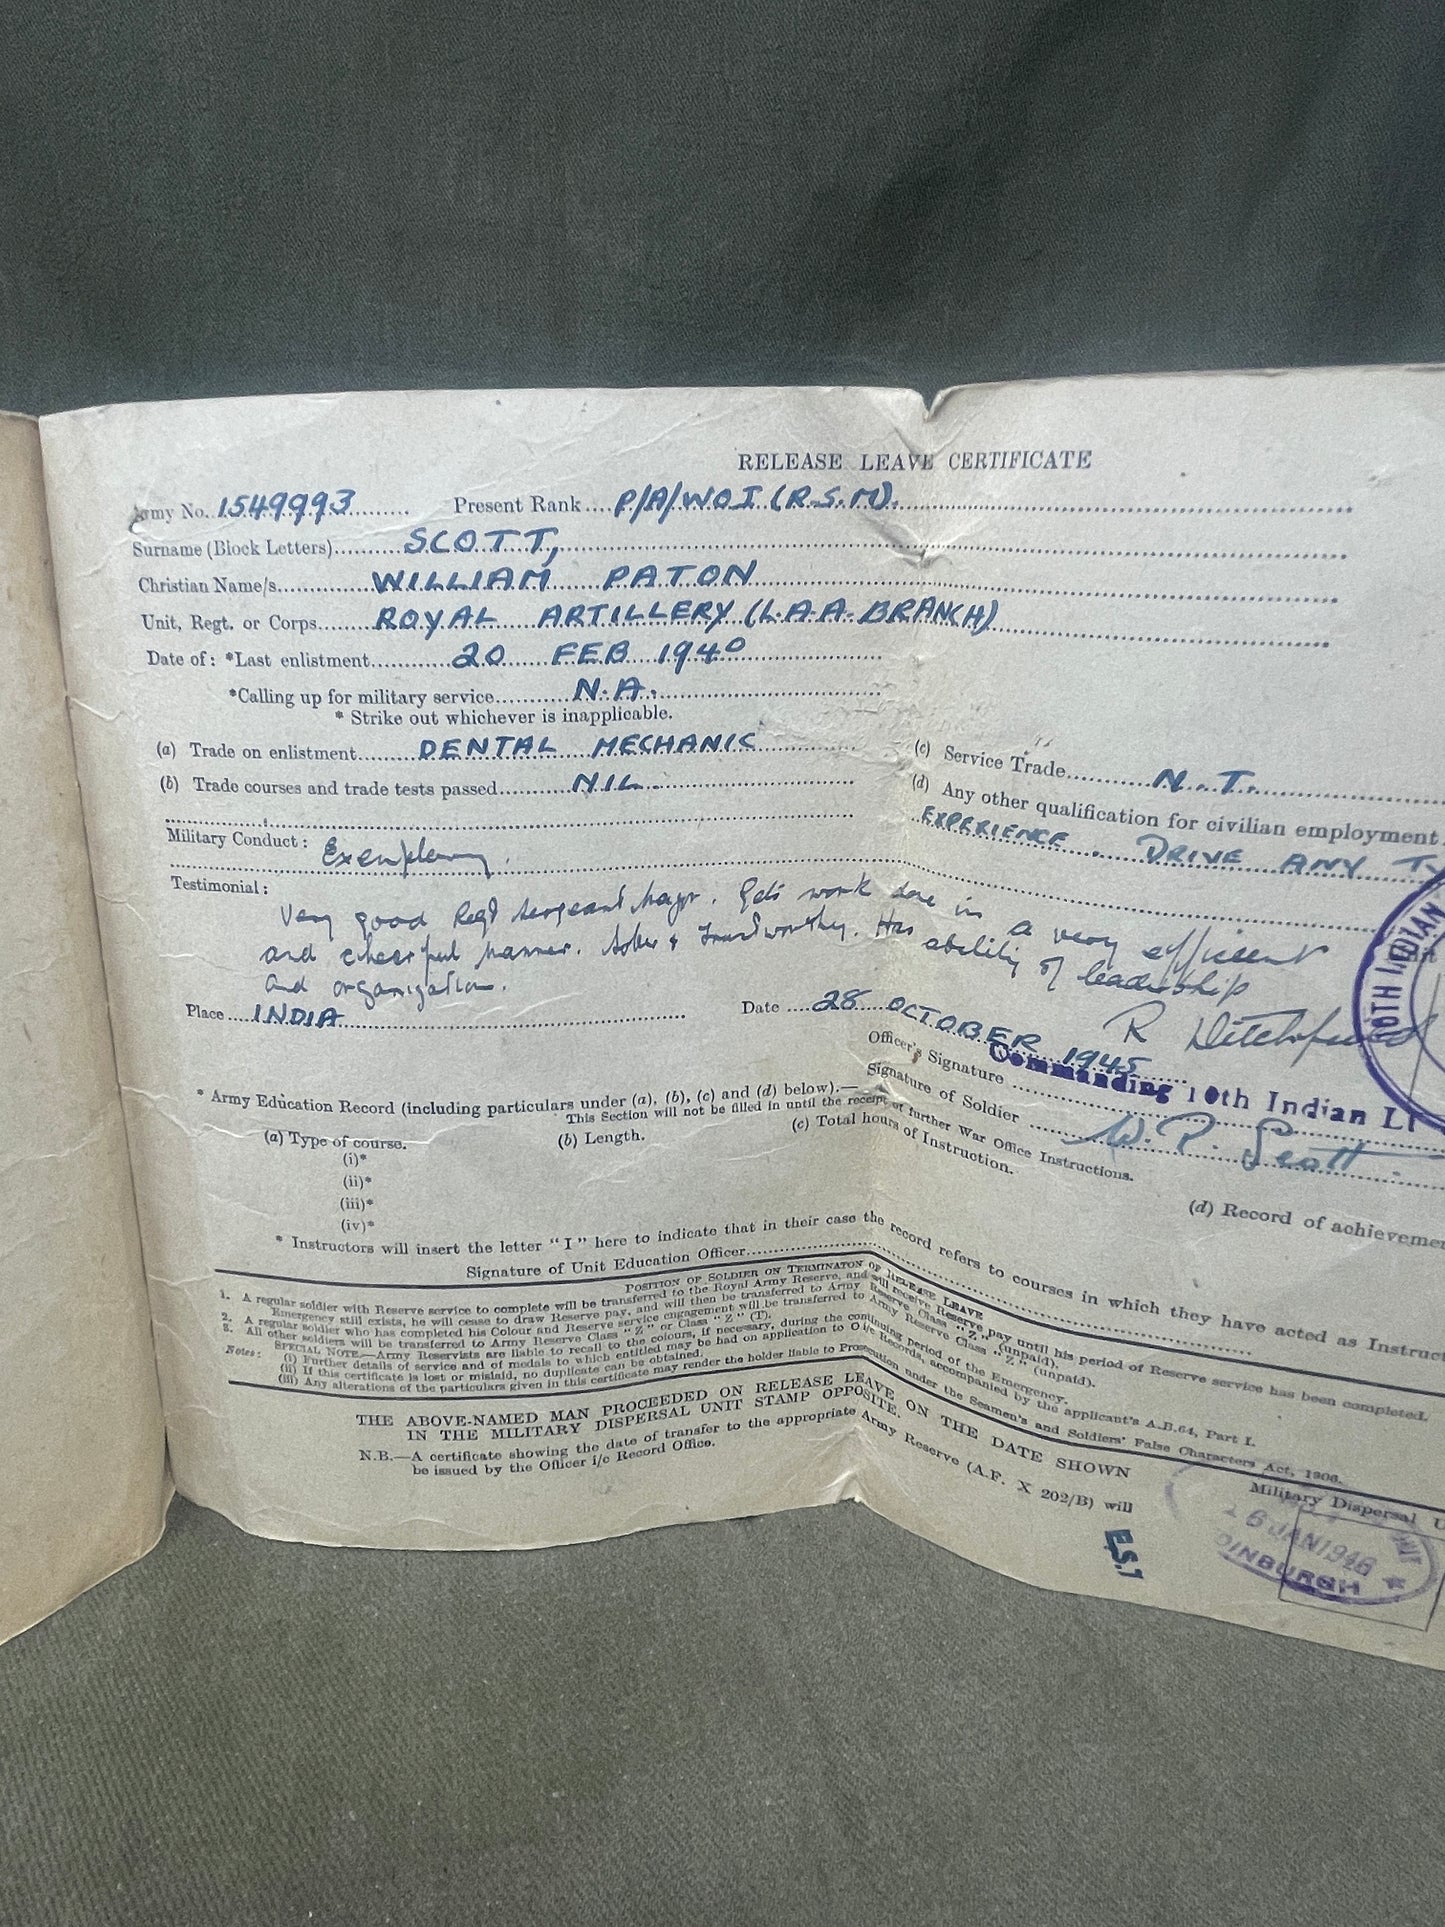 RELEASE LEAVE CERTIFICATE
Army No. 1549993 Present Rank P/A/WOI (R.S.M).
Surname (Block Letters) SCOTT,
Christian Name/s WILLIAM PATON
Unit, Regt. or Corps ROYAL ARTILLERY (L.A.A. BRANCH)
Date of: *Last enlistment 20 FEB 1940
*Calling up for military service N.A.
* Strike out whichever is inapplicable.
(a) Trade on enlistment DENTAL MECHANIC (c) Service Trade N.T.
(b) Trade courses and trade tests passed NIL. (d) Any other qualification for civilian employment
EXPERIENCE. DRIVE ANY TY
Military Conduct: Exemplary.
Testimonial:
Very good Regt Sergeant Major. Gets work done in a very efficient
and cheerful manner. Sober & trustworthy. Has ability of leadership
and organization.
Place INDIA Date 28 OCTOBER 1945
R Ditchfield
Officer's Signature
Commanding 10th Indian Lt
10TH INDIAN
Signature of Soldier W. P. Scott.
* Army Education Record (including particulars under (a), (b), (c) and (d) below).—
This Section will not be filled in until the receipt of further War Office Instructions.
(a) Type of course. (b) Length. (c) Total hours of Instruction. (d) Record of achievemen
(i)*
(ii)*
(iii)*
(iv)*
* Instructors will insert the letter "I" here to indicate that in their case the record refers to courses in which they have acted as Instruct
Signature of Unit Education Officer
POSITION OF SOLDIER ON TERMINATON OF RELEASE LEAVE
1. A regular soldier with Reserve service to complete will be transferred to the Royal Army Reserve, and will receive Reserve pay until his period of Reserve service has been completed.
Emergency still exists, he will cease to draw Reserve pay, and will then be transferred to Army Reserve Class "Z," (unpaid).
2. A regular soldier who has completed his Colour and Reserve service engagement will be transferred to Army Reserve Class "Z" (unpaid).
3. All other soldiers will be transferred to Army Reserve Class "Z" or Class "Z" (T).
SPECIAL NOTE.—Army Reservists are liable to recall to the colours, if necessary, during the continuing period of the Emergency.
Notes: (i) Further details of service and of medals to which entitled may be had on application to O i/c Records, accompanied by the applicant's A.B.64, Part I.
(ii) If this certificate is lost or mislaid, no duplicate can be obtained.
(iii) Any alterations of the particulars given in this certificate may render the holder liable to Prosecution under the Seamen's and Soldiers' False Characters Act, 1906.
THE ABOVE-NAMED MAN PROCEEDED ON RELEASE LEAVE ON THE DATE SHOWN
IN THE MILITARY DISPERSAL UNIT STAMP OPPOSITE.
N.B.—A certificate showing the date of transfer to the appropriate Army Reserve (A.F. X 202/B) will
be issued by the Officer i/c Record Office.
Military Dispersal U
JAN 1946
EDINBURGH
E.S.1